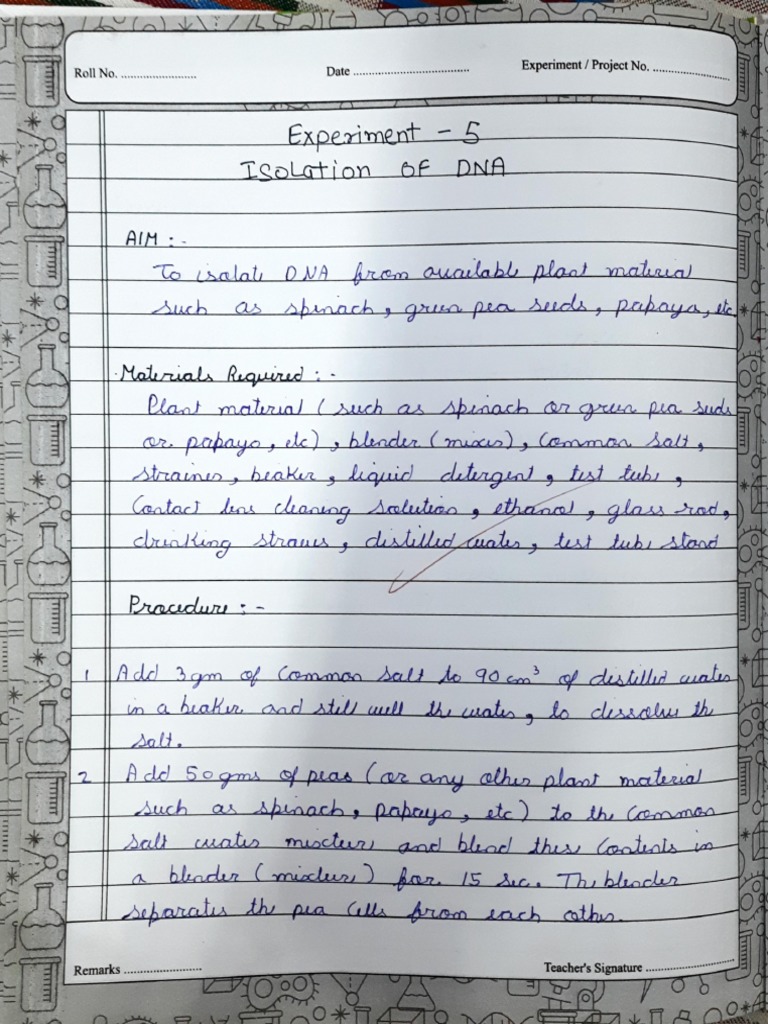 Roll No. ........................ Date .................................... Experiment / Project No. ........................
Experiment - 5
Isolation OF DNA
AIM : -
To isolate DNA from available plant material
such as spinach, green pea seeds, papaya, etc
Materials Required : -
Plant material ( such as spinach or green pea seeds
or papaya, etc) , blender (mixer) , Common salt ,
strainer , beaker , liquid detergent , test tube ,
Contact lens cleaning solution , ethanol , glass rod ,
drinking straws , distilled water , test tube stand
Procedure : -
1 Add 3gm of Common salt to 90 cm³ of distilled water
in a beaker and still well the water , to dissolve the
salt.
2 Add 50gms of peas (or any other plant material
such as spinach, papaya, etc) to the Common
salt water mixture and blend these Contents in
a blender (mixture) for 15 sec. The blender
separates the pea cells from each other.
Remarks ........................ Teacher's Signature ...........................